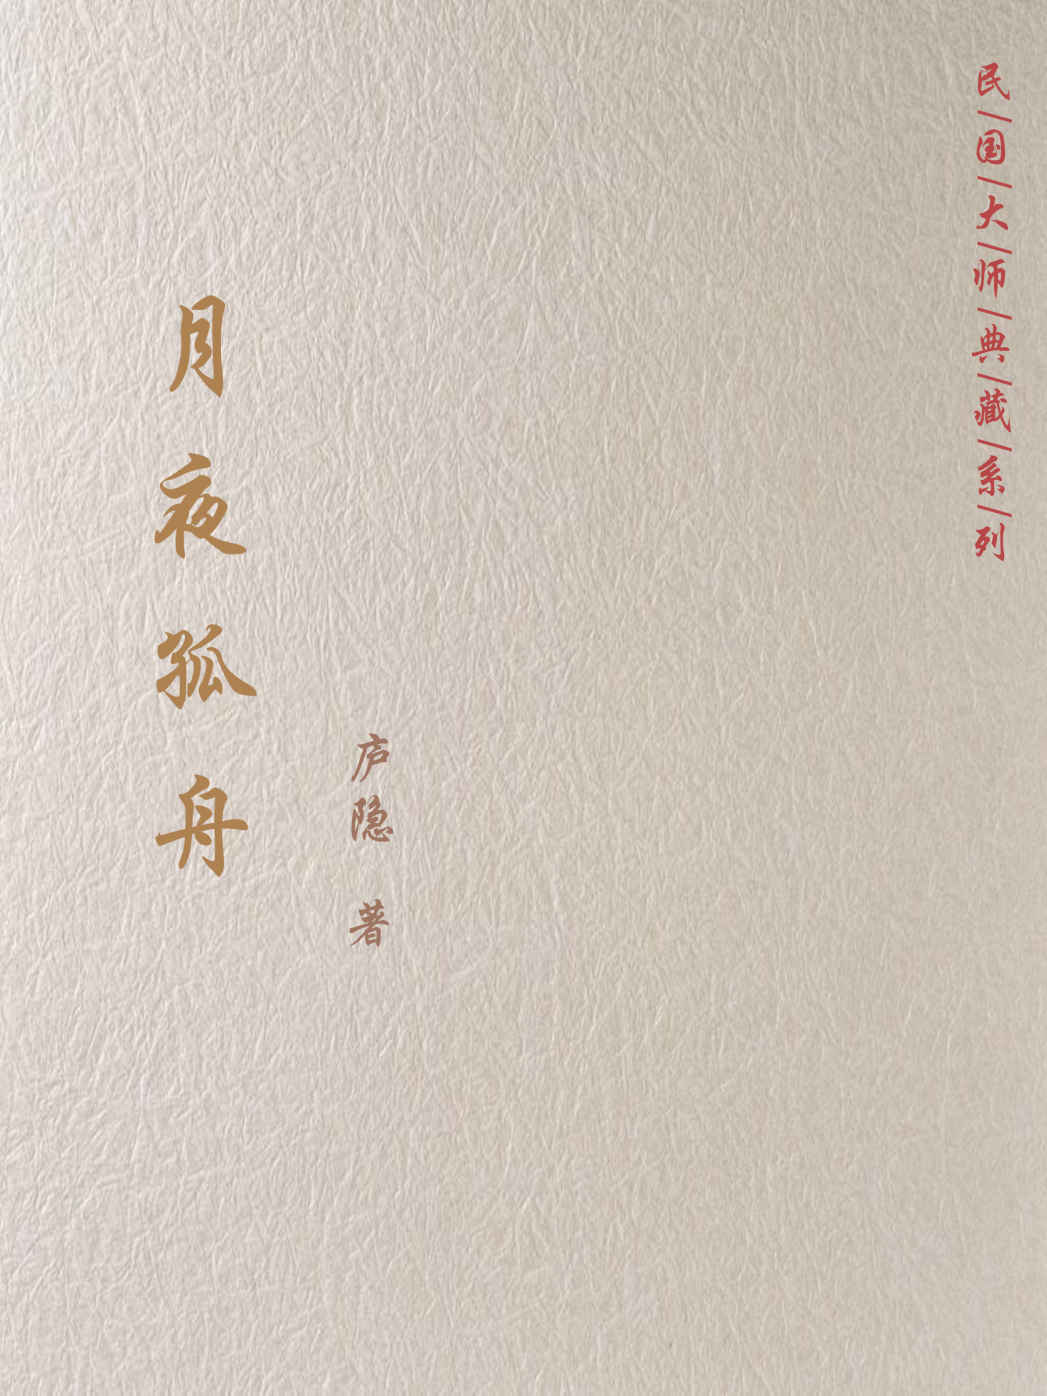 民/国/大/师/典/藏/系/列
月夜孤舟
庐隐 著